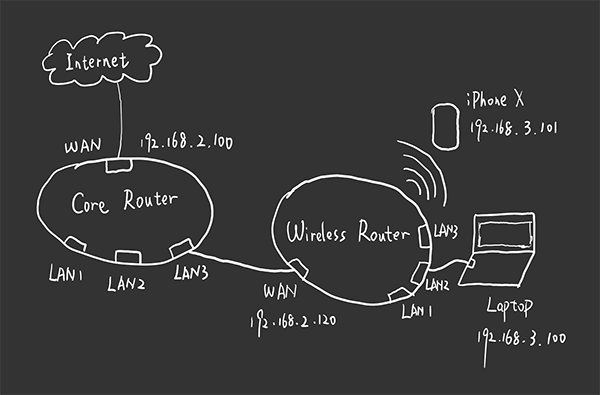 Internet
WAN 192.168.2.100
Core Router
LAN1
LAN2
LAN3
iPhone X
192.168.3.101
Wireless Router
LAN3
LAN2
LAN1
WAN
192.168.2.120
Laptop
192.168.3.100